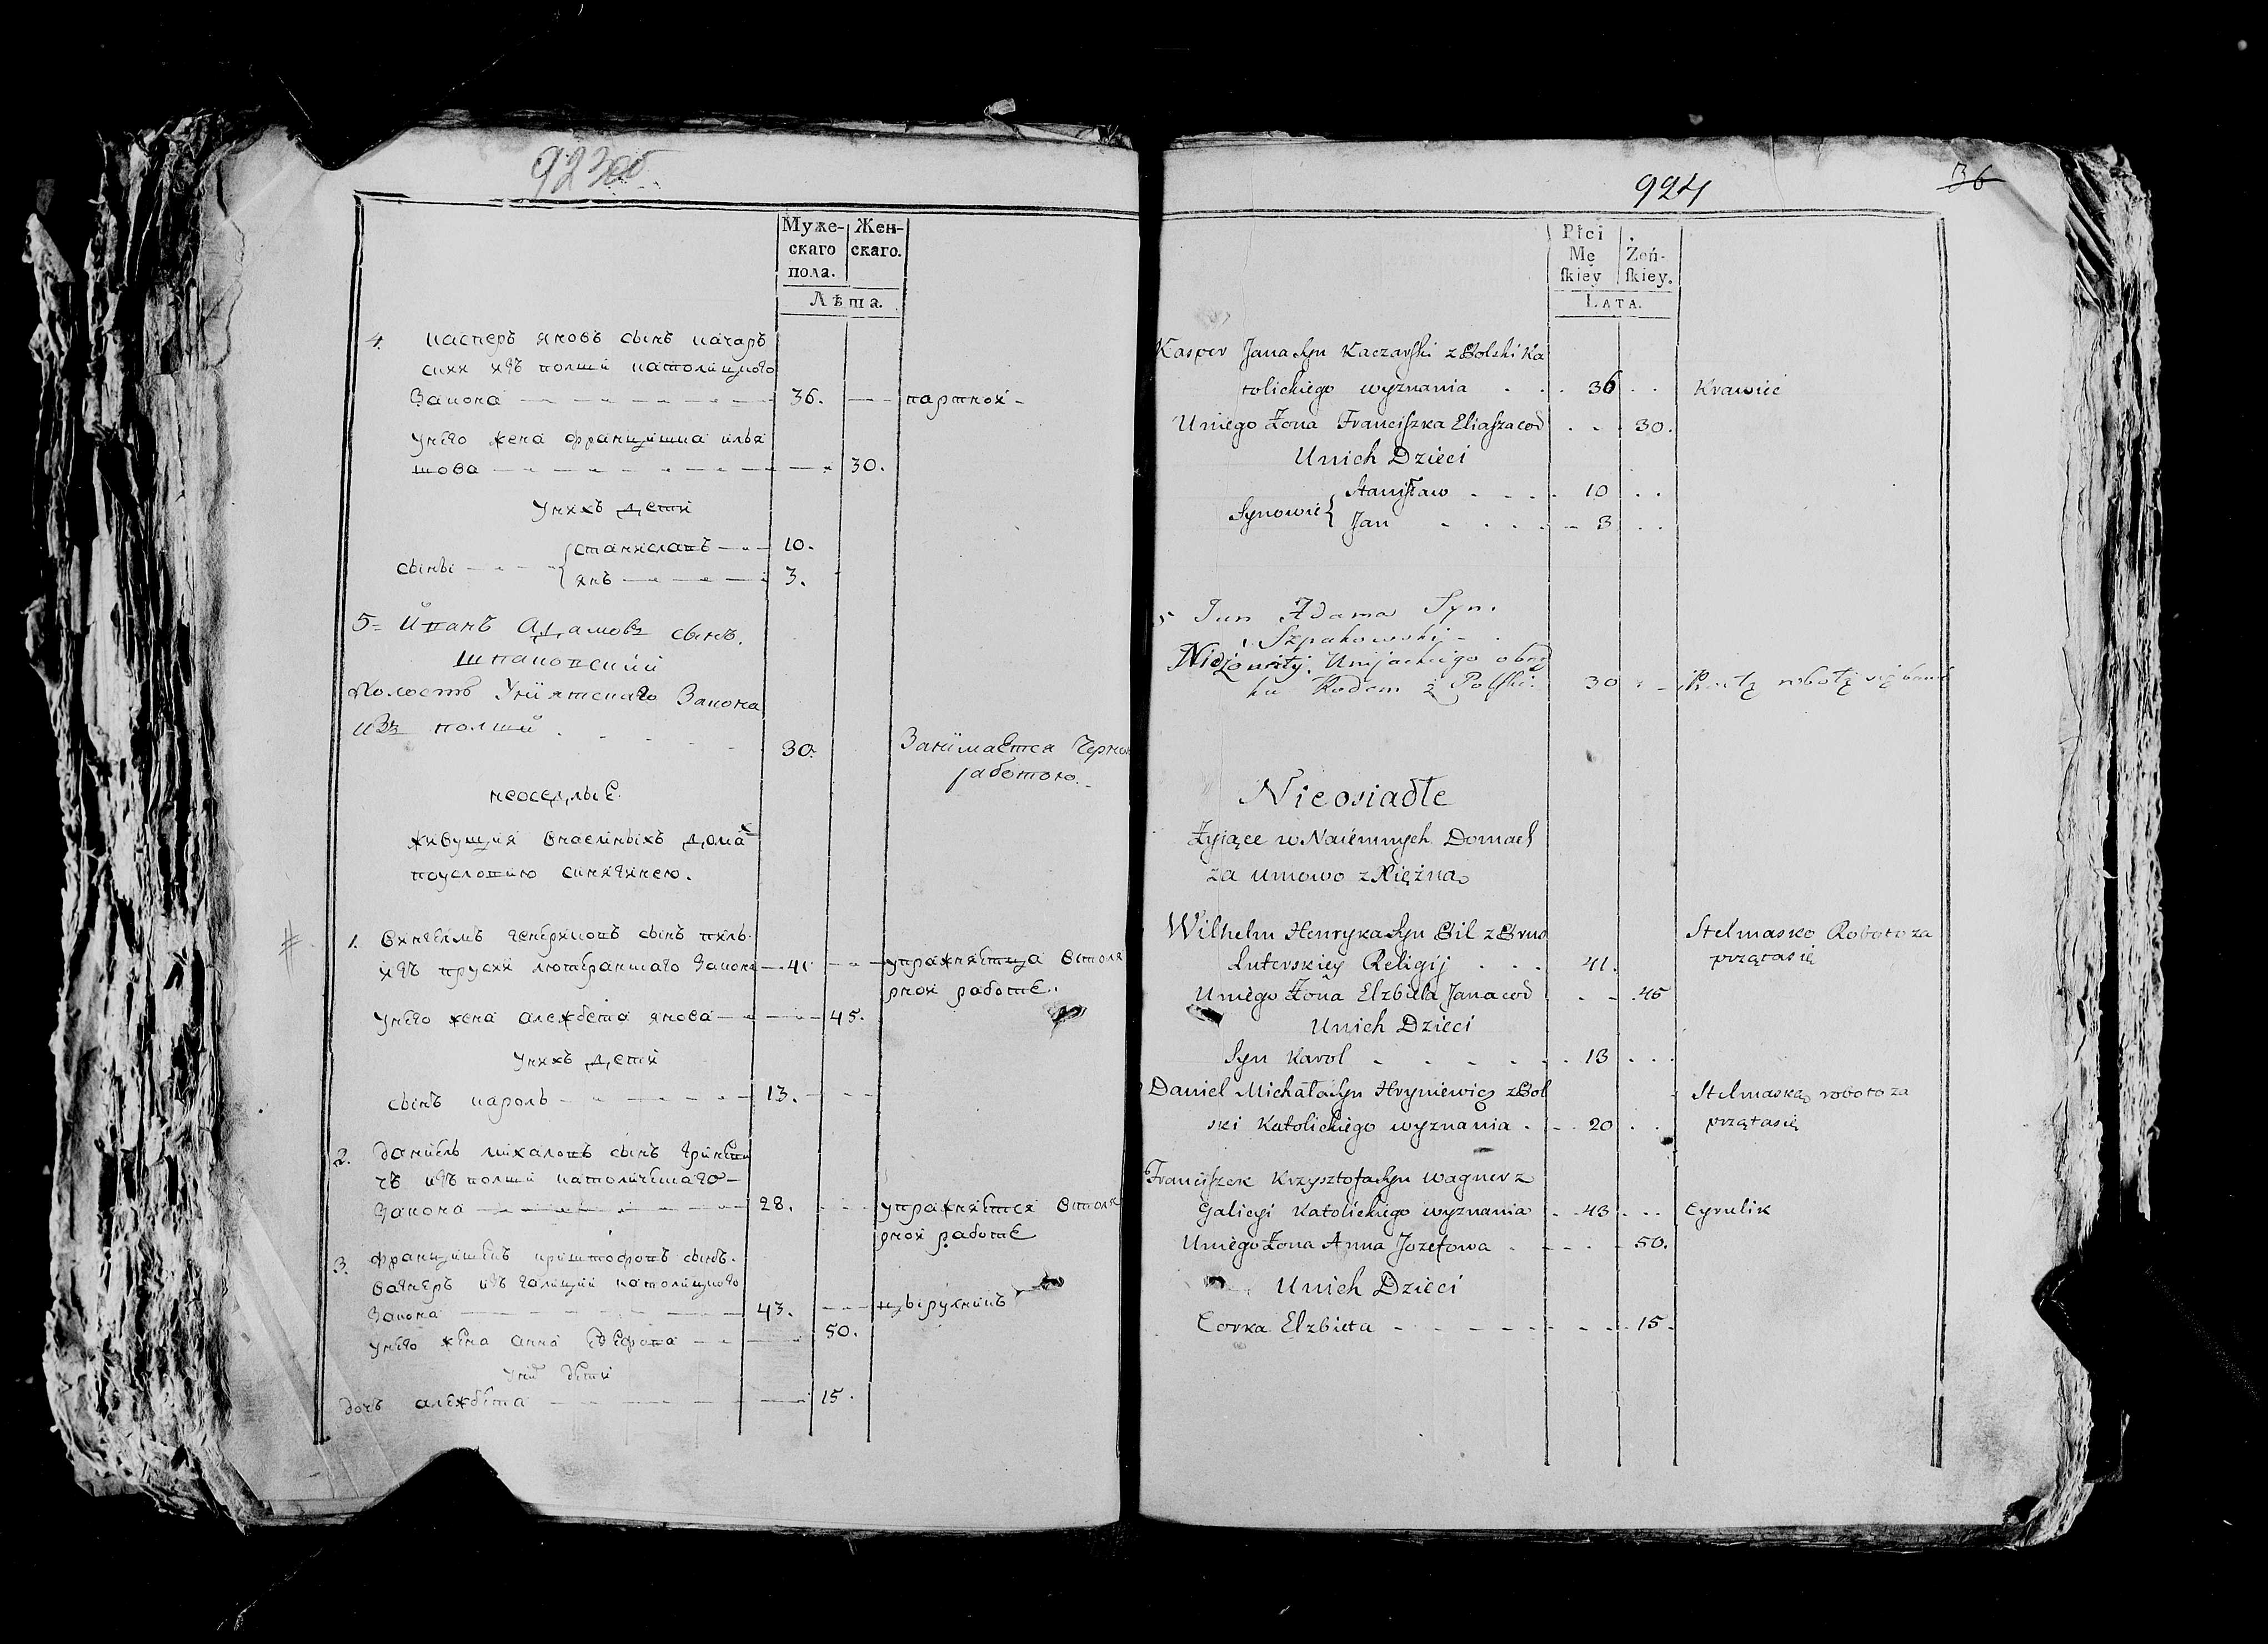 923 об
Муже-
скаго
пола.
Жен-
скаго.
Лѣта.
4. Касперъ яновъ сынъ качаръ
скии изъ полши католицкого
Закона 36. партной
Унего жена францишка илья
шова 30.
Унихъ дети
сыны
станиславъ 10.
янъ 3.
5 Иванъ Адамовъ сынъ.
Шпаковский
Холостъ Униятскаго Закона
изъ полши
30. Занимается черною
работою.
неоседлые.
живущия внаемныхъ дома
поусловию скнягинею.
1. Вилгелмъ генбриховъ сынъ пиль
изъ прусии лютеранскаго Закона 41 упражняетца встоля
рной работе.
Унего жена алежбета янова 45.
Унихъ дети
сынъ кароль 13.
2. Даниель михаловъ сынъ гриневи
чъ изъ полши католическаго
Закона 28. упражняется встоля
рной работе
3. Францишекъ криштофовъ сынъ.
вагнеръ изъ галиции католицкого
Закона 43. цырулникъ
унего жена анна 50.
дети
дочь алежбета 15.
924
36
Płci
Mę
skiey
Żeń-
skiey.
LATA.
Kasper Jana Syn Kaczarski z Polski Ka
tolickiego wyznania 36 Krawiec
Uniego Żona Franciszka Eliasza cod 30.
Unich Dzieci
Synowie
Stanisław 10
Jan 3
5 Jan Adama Syn.
Szpakowski
Nieżonaty Unijackiego obrząd
ku Rodem z Polski 30
Nieosiadłe
Żyiące w Naiemnych Domach
za umowo z Xięźną
Wilhelm Henryka Syn Pil z Prus
Luterskiey Religij 41.
Stelmasko Roboto za
przątasię
Uniego Żona Elzbieta Jana cod 45
Unich Dzieci
Syn Karol 13
Daniel Michała Syn Hryniewicz z Pol
ski Katolickiego wyznania 20
Stelmaską roboto za
przątasię
Franciszek Krzysztofa Syn Wagner z
Galicyi Katolickiego wyznania 43 Cyrulik
Uniego Żona Anna Jozefowa 50.
Unich Dzieci
Corka Elzbieta 15